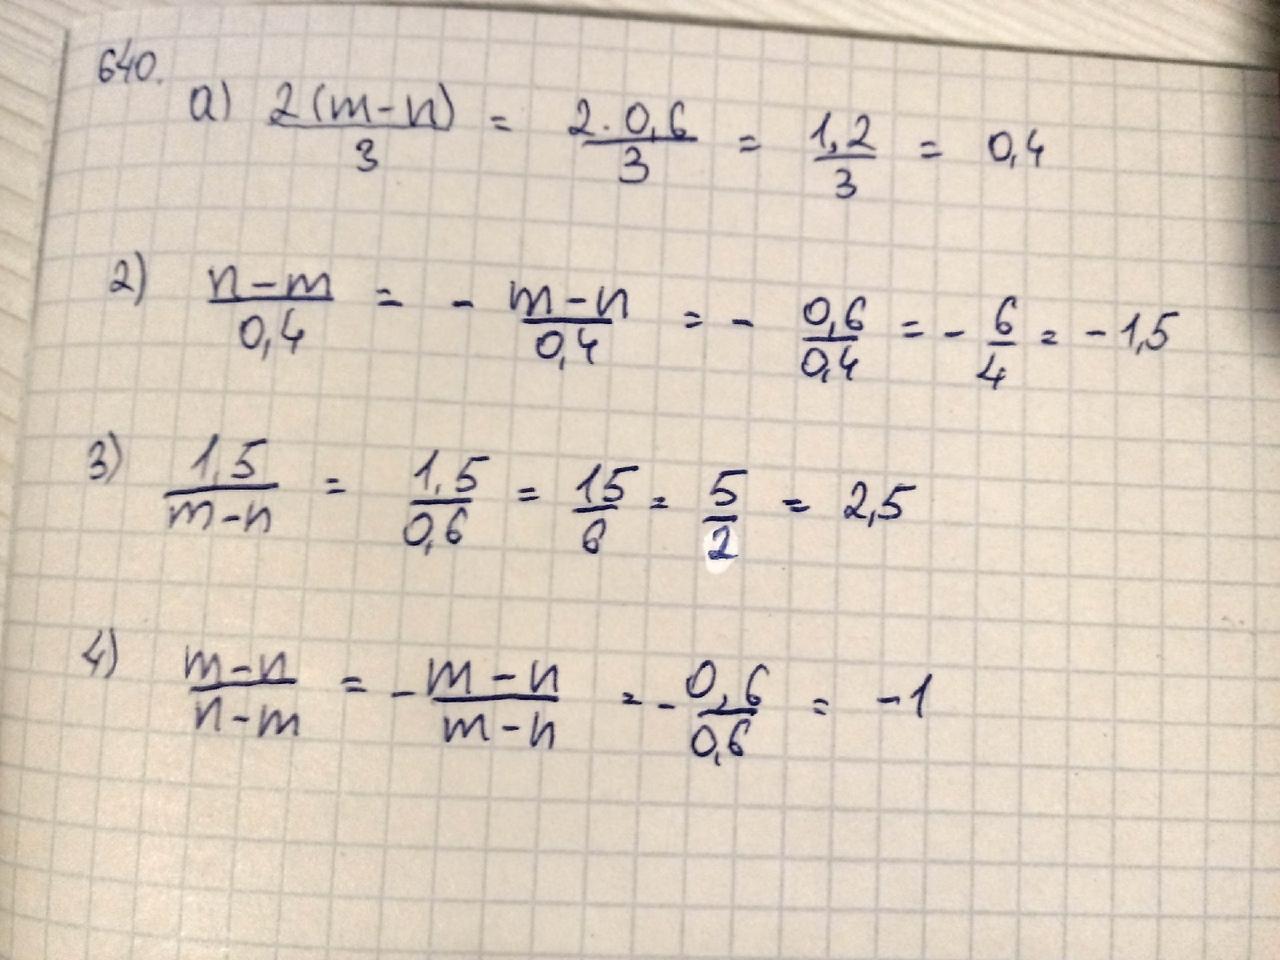 640.
a) 2(m-n)/3 = 2·0,6/3 = 1,2/3 = 0,4
2) n-m/0,4 = - m-n/0,4 = - 0,6/0,4 = - 6/4 = -1,5
3) 1,5/m-n = 1,5/0,6 = 15/6 = 5/2 = 2,5
4) m-n/n-m = - m-n/m-n = - 0,6/0,6 = -1